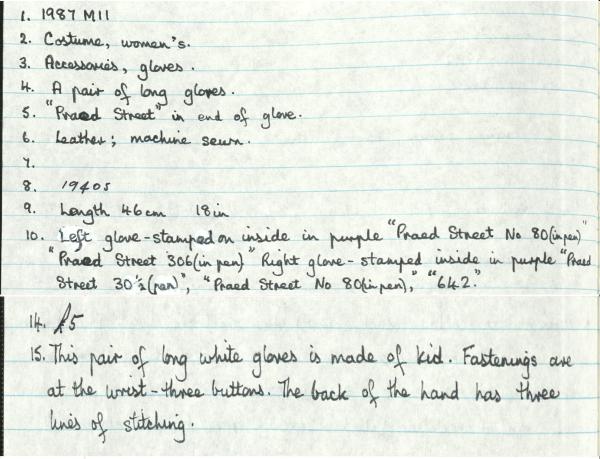 1. 1987 M11
2. Costume, women's.
3. Accessories, gloves.
4. A pair of long gloves.
5. "Praed Street" in end of glove.
6. Leather; machine sewn.
7.
8. 1940s
9. Length 46cm 18in
10. Left glove - stamped on inside in purple "Praed Street No 80(in pen)"
"Praed Street 306(in pen)" Right glove - stamped inside in purple "Praed
Street 30½(pen)", "Praed Street No 80(in pen)," "642."
14. £5
15. This pair of long white gloves is made of kid. Fastenings are
at the wrist - three buttons. The back of the hand has three
lines of stitching.